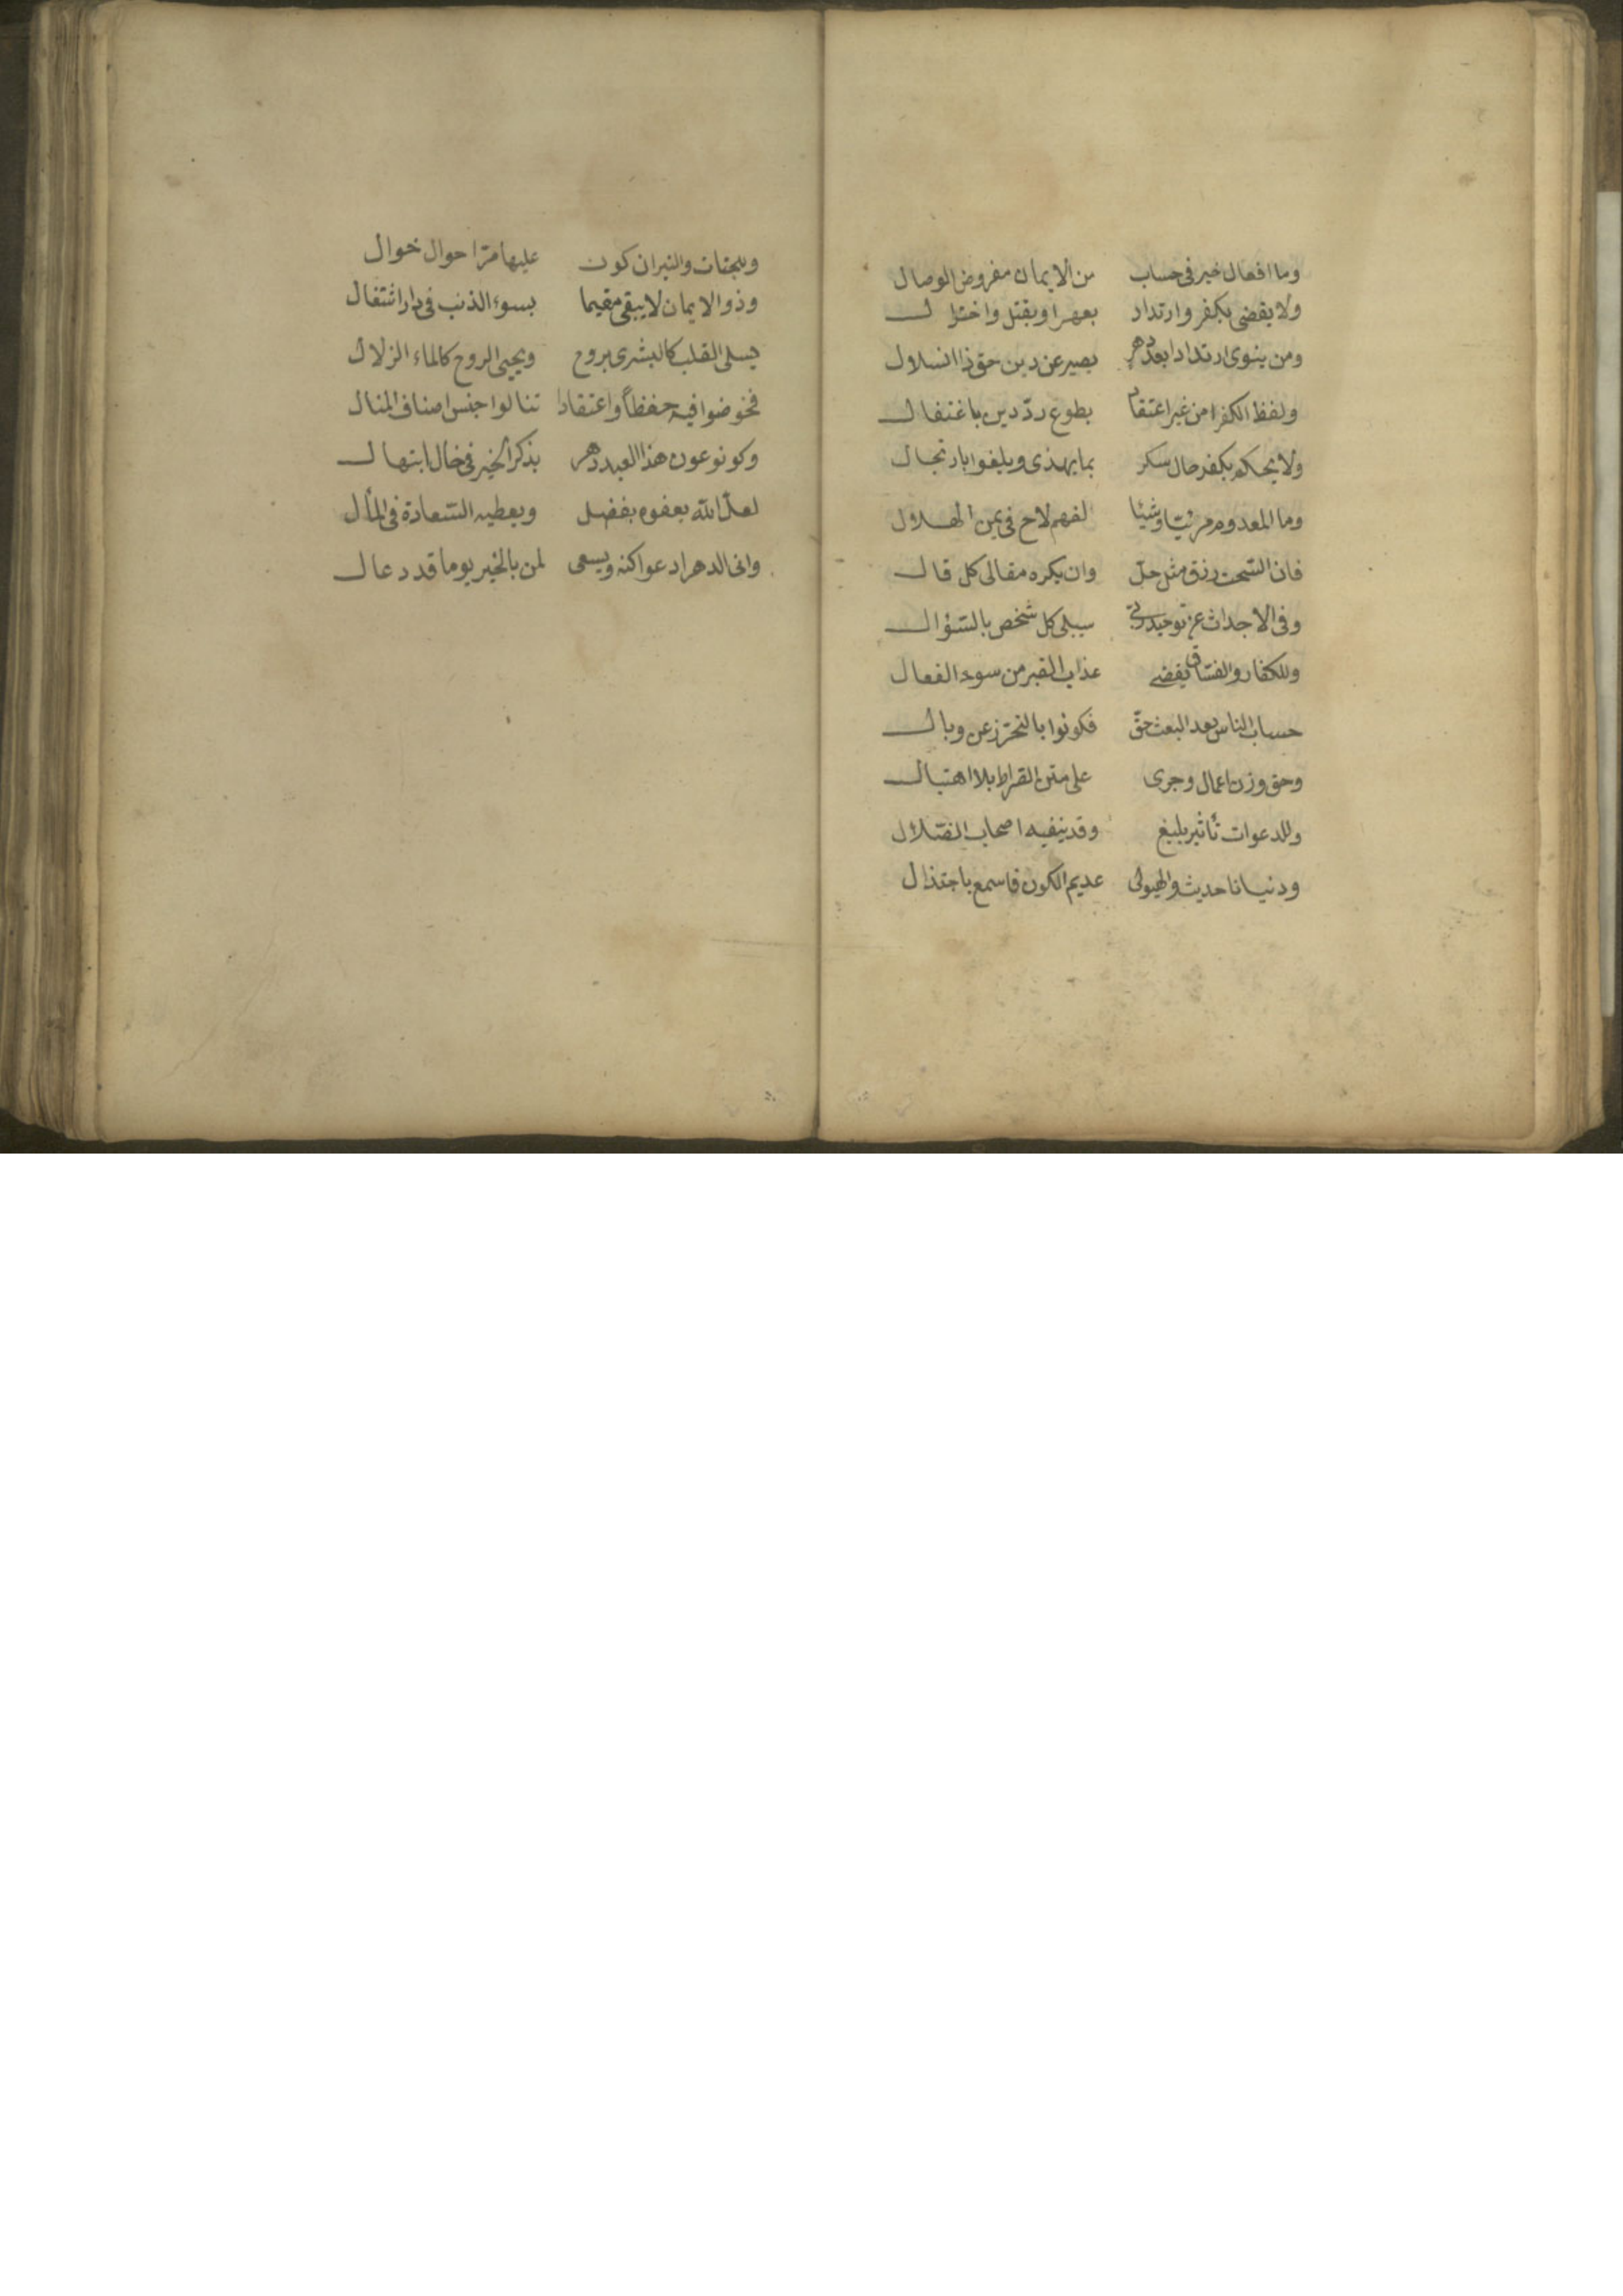 وما افعال خير فى حساب من الايمان مفروض الوصال
ولا يقضى بكفر وارتداد بعهر او بقتل واختزال
ومن ينوى ارتدادا بعد دهر يصير عن دين حق ذا انسلال
ولفظ الكفر من غير اعتقاد بطوع ردّ دين باغتفال
ولا يحكم بكفر حال سكر بما يهذى ويلغوا بارتجال
وما المعدوم مرئيّا وشيئا لفهم لاح فى يمن الهلال
فان السّحت رزق مثل حلّ وان يكره مقالى كل قال
وفى الاجداث عن توحيد ربّى سيبلى كل شخص بالسّؤال
وللكفار والفسّاق يقضى عذاب القبر من سوء الفعال
حساب الناس بعد البعث حقّ فكونوا بالتحرّز عن وبال
وحق وزن اعمال وجرى على متن الصراط بلا اهتبال
وللدعوات تأثير بليغ وقد ينفيه اصحاب الضّلال
ودنيانا حديث والهيولى عديم الكون فاسمع باجتذال
وللجنّات والنيران كون عليها مرّ احوال خوال
وذو الايمان لا يبقى مقيما بسوء الذنب فى دار اشتغال
يسلى القلب كالبشرى بروح ويحيى الروح كالماء الزلال
فخوضوا فيه حفظاً واعتقادا تنالوا جنس اصناف المنال
وكونو عون هذا العبد دهر بذكر الخير فى حال ابتهال
لعلّ الله يعفوه بفضل ويعطيه السّعادة فى المأل
وانى الدهر ادعوا كنه ويسعى لمن بالخير يوما قد دعال